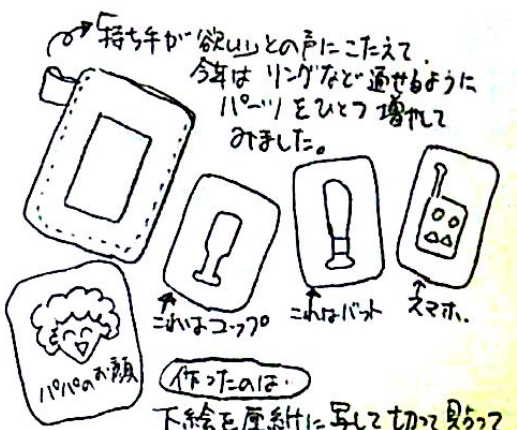 「持ち手が欲しい」との声にこたえて、
今年は リングなど 通せるように
パーツをひとつ 増やして
みました。
これはコップ
これはバット
スマホ.
パパのお顔
作ったのは
下絵を厚紙に写して切って貼って